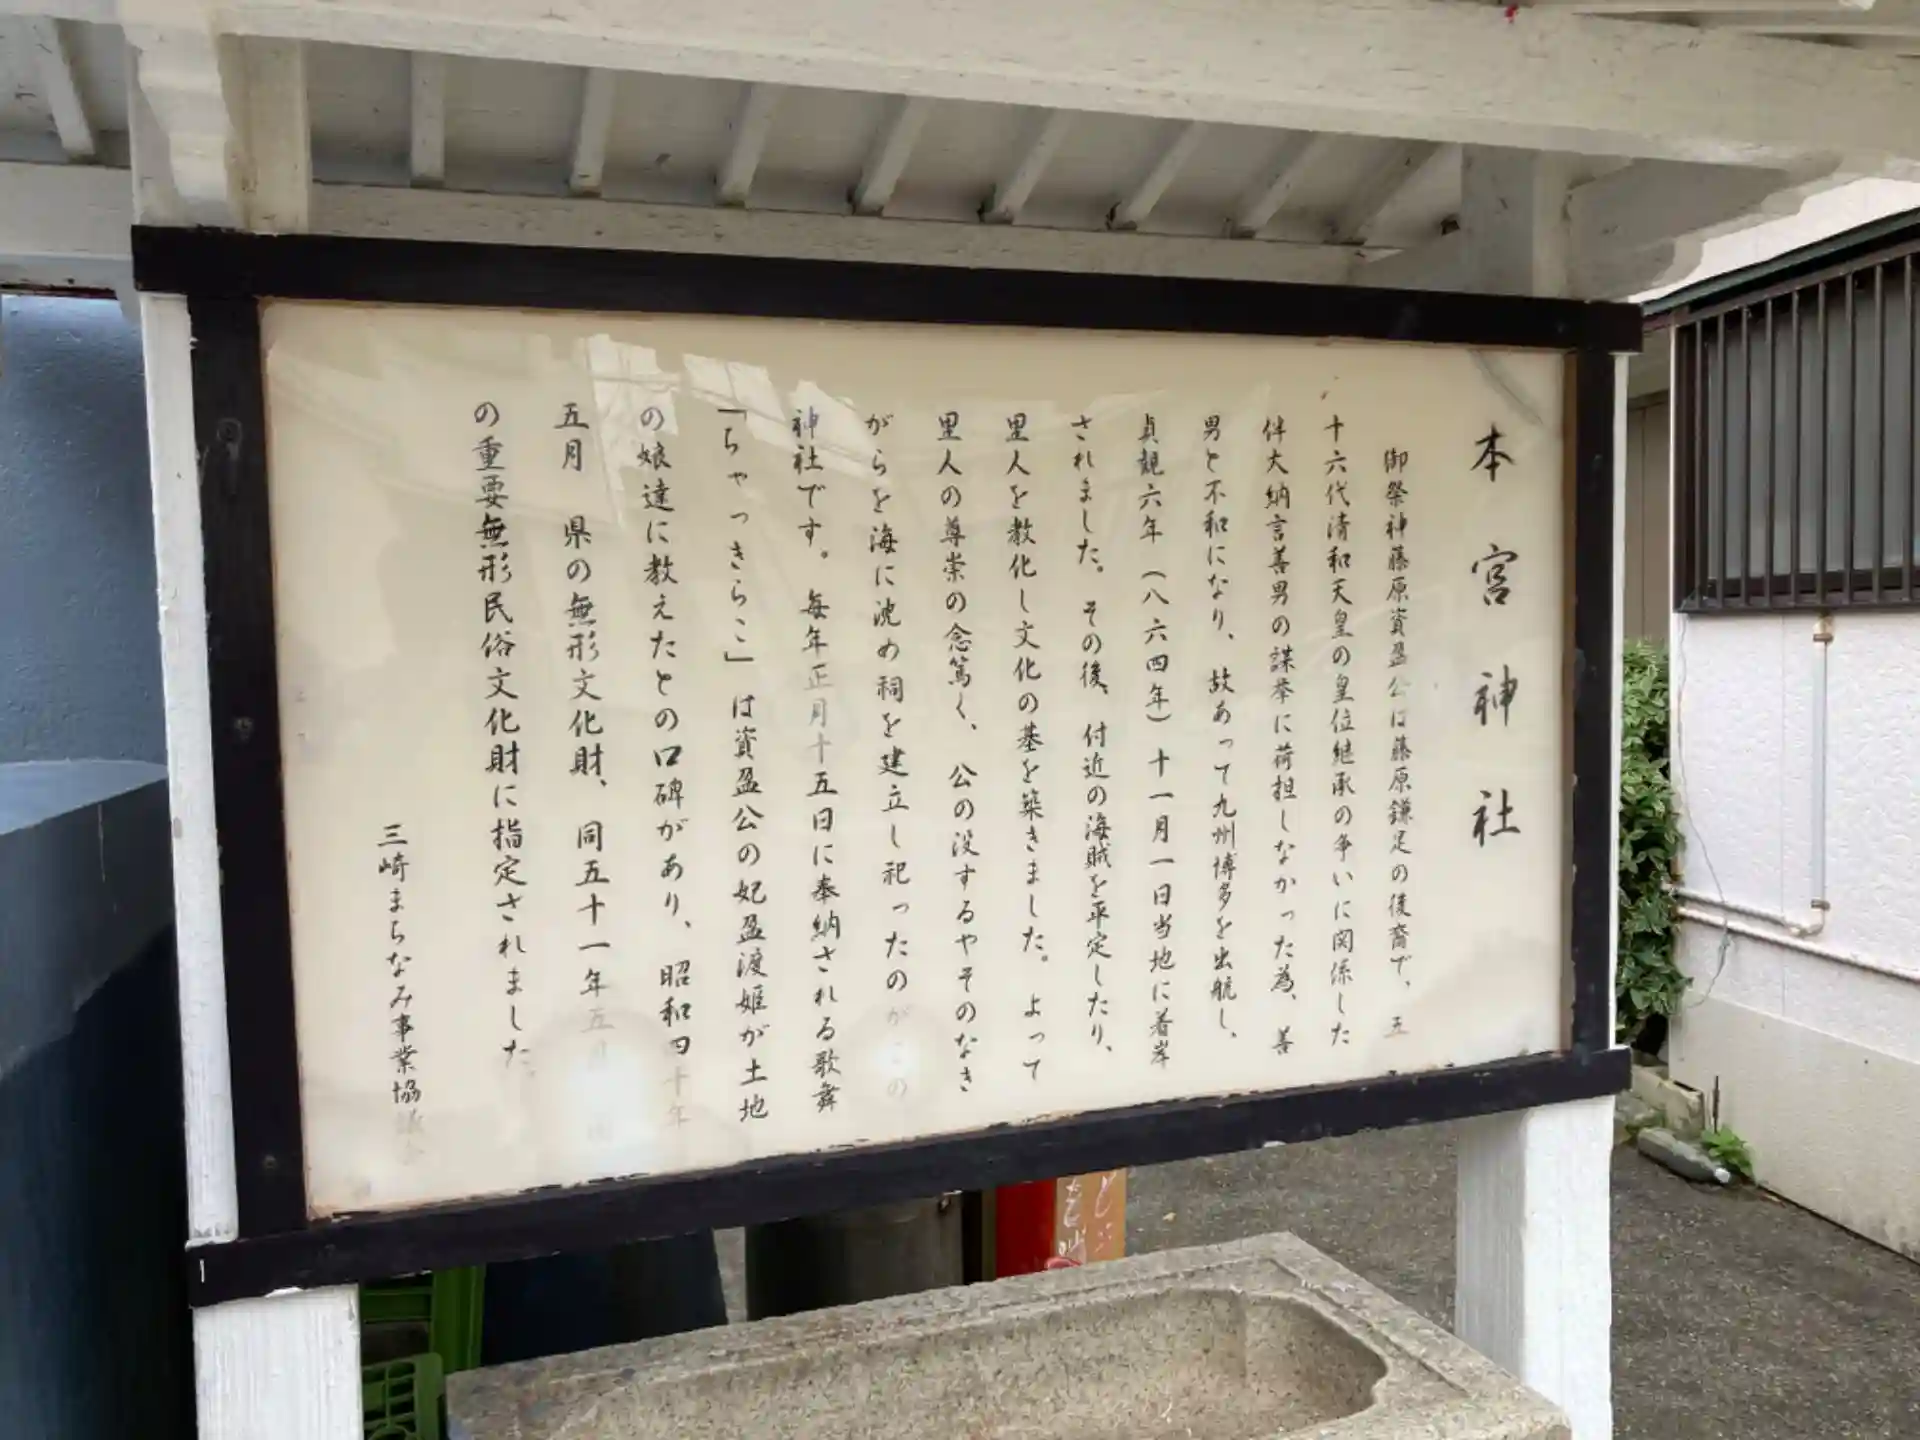 本宮神社
御祭神藤原資盈公は藤原鎌足の後裔で、五
十六代清和天皇の皇位継承の争いに関係した
伴大納言善男の謀挙に荷担しなかった為、善
男と不和になり、故あって九州博多を出航し、
貞観六年（八六四年）十一月一日当地に着岸
されました。その後、付近の海賊を平定したり、
里人を教化し文化の基を築きました。よって
里人の尊崇の念篤く、公の没するやそのなき
がらを海に沈め祠を建立し祀ったのがこの
神社です。毎年正月十五日に奉納される歌舞
「ちゃっきらこ」は資盈公の妃盈渡姫が土地
の娘達に教えたとの口碑があり、昭和四十年
五月　県の無形文化財、同五十一年五月　国
の重要無形民俗文化財に指定されました。
三崎まちなみ事業協議会